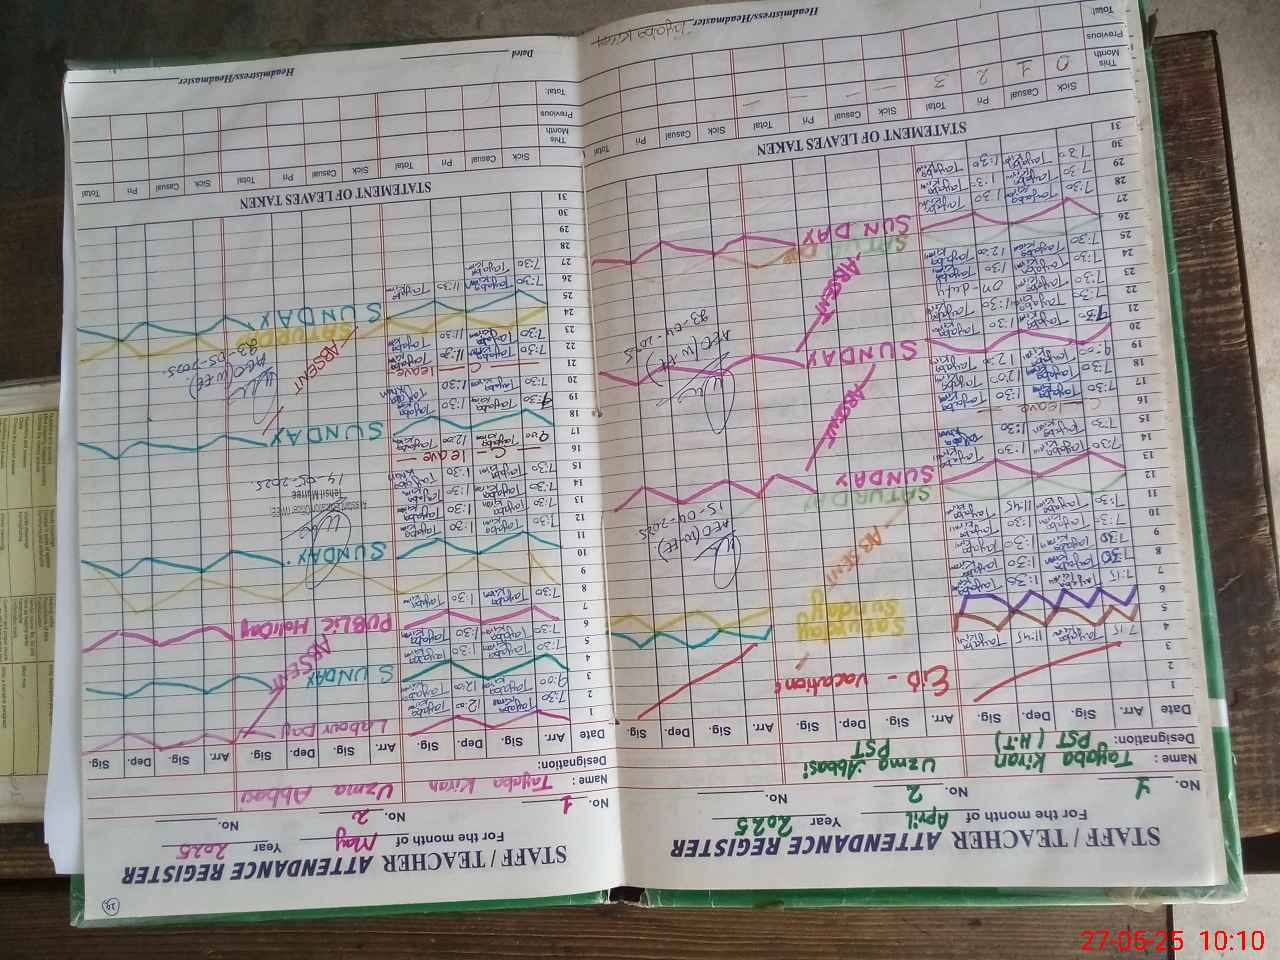 STAFF / TEACHER ATTENDANCE REGISTER
For the month of April Year 2025
No. 1 No. 2 No.
Name : Tayaba Kiran Uzma Abbasi
Designation: PST (H.T) PST
Date Arr. Sig. Dep. Sig. Arr. Sig. Dep. Sig. Arr. Sig. Dep. Sig.
1
2 EID - Vacations
3
4 7:15 Tayaba Kiran 11:45 Tayaba Kiran
5 Saturday
6 Sunday
7 7:15 Tayaba Kiran 1:30 Tayaba Kiran
8 7:30 Tayaba Kiran 1:30 Tayaba Kiran
9 7:30 Tayaba Kiran 1:30 Tayaba Kiran ABSENT
10 7:30 Tayaba Kiran 1:30 Tayaba Kiran
11 7:30 Tayaba Kiran 11:45 Tayaba Kiran
12 SATURDAY
AEO (W-EE)
15-04-2025
13 SUNDAY
14 7:30 Tayaba Kiran 1:30 Tayaba Kiran
15 7:30 Tayaba Kiran 1:30 Tayaba Kiran
16 C leave ABSENT
17 7:30 Tayaba Kiran 1:30 Tayaba Kiran
18 7:30 Tayaba Kiran 12:00 Tayaba Kiran
19 9:00 Tayaba Kiran 12:00 Tayaba Kiran
20 SUNDAY
21 7:30 Tayaba Kiran 1:30 Tayaba Kiran
22 7:30 Tayaba Kiran 1:30 Tayaba Kiran
AEO (W-EE)
23-04-2025
23 7:30 Tayaba Kiran on-duty ABSENT
24 7:30 Tayaba Kiran 1:30 Tayaba Kiran
25 7:30 Tayaba Kiran 12:00 Tayaba Kiran
26 SATURDAY
27 SUNDAY
28 7:30 Tayaba Kiran 1:30 Tayaba Kiran
29 7:30 Tayaba Kiran 1:30 Tayaba Kiran
30 7:30 Tayaba Kiran 1:30 Tayaba Kiran
31
STATEMENT OF LEAVES TAKEN
Sick Casual Pri Total Sick Casual Pri Total Sick Casual Pri Total
This Month 0 1 2 3 - - - -
Previous
Total
Headmistress/Headmaster Tayaba Kiran
29
STAFF / TEACHER ATTENDANCE REGISTER
For the month of May Year 2025
No. 1 No. 2 No.
Name : Tayaba Kiran Uzma Abbasi
Designation:
Date Arr. Sig. Dep. Sig. Arr. Sig. Dep. Sig. Arr. Sig. Dep. Sig.
1 Labour Day
2 7:30 Tayaba Kiran 12:00 Tayaba Kiran
3 9:00 Tayaba Kiran 12:00 Tayaba Kiran
4 SUNDAY
5 7:30 Tayaba Kiran 1:30 Tayaba Kiran ABSENT
6 7:30 Tayaba Kiran 1:30 Tayaba Kiran
7 PUBLIC HOLIDAY
8 7:30 Tayaba Kiran 1:30 Tayaba Kiran
9
10
11 SUNDAY
12 7:30 Tayaba Kiran 1:30 Tayaba Kiran
13 7:30 Tayaba Kiran 1:30 Tayaba Kiran
14 7:30 Tayaba Kiran 1:30 Tayaba Kiran
Tehsil Murree
14-05-2025
15 7:30 Tayaba Kiran 1:30 Tayaba Kiran
16 - C - leave -
17 9:00 Tayaba Kiran 12:00 Tayaba Kiran
18 SUNDAY
19 7:30 Tayaba Kiran 1:30 Tayaba Kiran
20 7:30 Tayaba Kiran 1:30 Tayaba Kiran
21 - C - leave - ABSENT
AEO (W-EE)
23-05-2025
22 7:30 Tayaba Kiran 11:30 Tayaba Kiran
23 7:30 Tayaba Kiran 11:30 Tayaba Kiran
24 SATURDAY
25 SUNDAY
26 7:30 Tayaba Kiran 11:30 Tayaba Kiran
27 7:30 Tayaba Kiran
28
29
30
31
STATEMENT OF LEAVES TAKEN
Sick Casual Pri Total Sick Casual Pri Total Sick Casual Pri Total
This Month
Previous
Total
Dated Headmistress/Headmaster
27-05-25 10:10